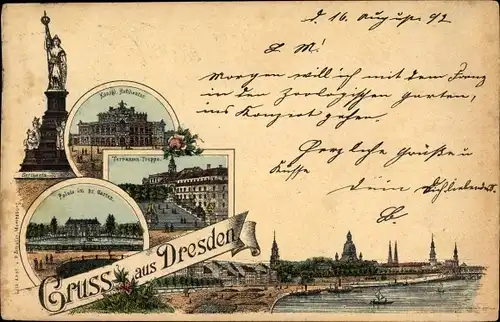 d. 16. August 92
L. M!
Morgen will ich mit dem Franz
in den Zoologischen Garten,
ins Konzert gehen.
Herzliche Grüße u
Küsse
Dein
Königl. Hoftheater
Terrassen-Treppe.
Germania.
Palais im Gr. Garten.
Gruss aus Dresden